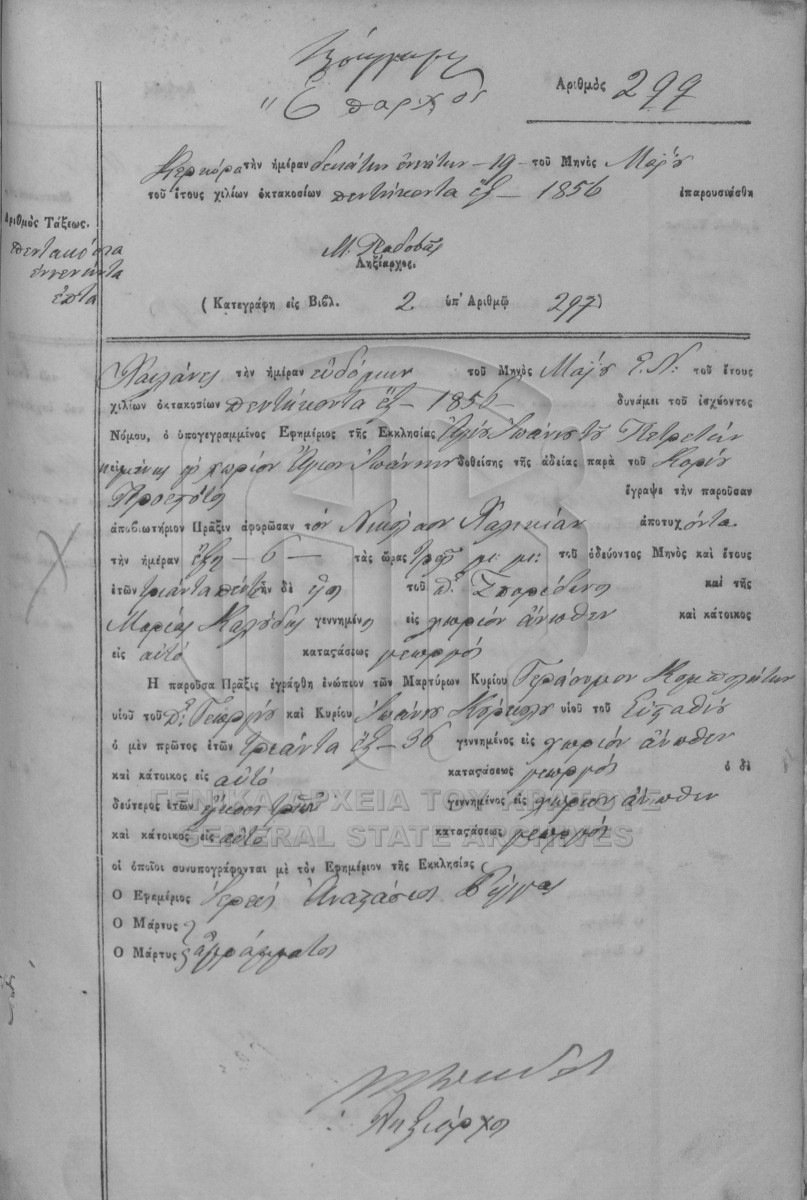 Ὁ παροχος
Ἀριθμὸς 297
Κερκύρα τὴν ἡμέραν δεκάτην ἐννάτην - 19 - τοῦ Μηνὸς Μαΐου
τοῦ ἔτους χιλίων ὀκτακοσίων πεντήκοντα ἓξ - 1856 ἐπαρουσιάσθη
Ἀριθμὸς Τάξεως.
πεντακόσια
ἐννενήντα
ἑπτὰ
Μ. Παδοβᾶς
Ληξίαρχος.
( Κατεγράφη εἰς Βιβλ. 2. ὑπ' Ἀριθμῷ 297 )
τὴν ἡμέραν ἑυδόμην τοῦ Μηνὸς Μαΐου Ε. Ν: τοῦ ἔτους
χιλίων ὀκτακοσίων πεντήκοντα ἓξ - 1856 - δυνάμει τοῦ ἰσχύοντος
Νόμου, ὁ ὑπογεγραμμένος Ἐφημέριος τῆς Ἐκκλησίας Ἁγίου Ἰωάννου τοῦ Πετρετῆ
χωρίον Ἅγιον Ἰωάννην δοθείσης τῆς ἀδείας παρὰ τοῦ Κυρίου
Προεστοῦ ἔγραψε τὴν παροῦσαν
ἀποβιωτήριον Πρᾶξιν ἀφορῶσαν τὸν Νικόλαον ἀποτυχόντα
τὴν ἡμέραν ἕξη - 6 - τὰς ὥρας τρεῖς μ: μ: τοῦ ὁδεύοντος Μηνὸς καὶ ἔτους
ἐτῶν τριάντα πέντε ἦν δὲ υἱὸς τοῦ πο: Σπυρίδωνος καὶ τῆς
Μαρίας γεννημένος εἰς χωρίον ἄνωθεν καὶ κάτοικος
εἰς αὐτό καταςάσεως γεωργός
Ἡ παροῦσα Πρᾶξις ἐγράφθη ἐνώπιον τῶν Μαρτύρων Κυρίου Γεράσιμου
υἱοῦ τοῦ πο: Γεωργίου καὶ Κυρίου Ἰωάννου υἱοῦ τοῦ Εὐσταθίου
ὁ μὲν πρῶτος ἐτῶν τριάντα ἓξ - 36 γεννημένος εἰς χωρίον ἄνωθεν
καὶ κάτοικος εἰς αὐτό καταςάσεως γεωργός ὁ δὲ
δεύτερος ἐτῶν εἴκοσι τριῶν γεννημένος εἰς χωρίον ἄνωθεν
καὶ κάτοικος εἰς αὐτό καταςάσεως γεωργός
οἱ ὁποῖοι συνυπογράφονται μὲ τὸν Ἐφημέριον τῆς Ἐκκλησίας
Ὁ Ἐφεμέριος Ἱερεὺς Ἀναστάσιος
Ὁ Μάρτυς
Ὁ Μάρτυς ἀγράμματοι
Ληξίαρχος
ΓΕΝΙΚΑ ΑΡΧΕΙΑ ΤΟΥ ΚΡΑΤΟΥΣ
GENERAL STATE ARCHIVES